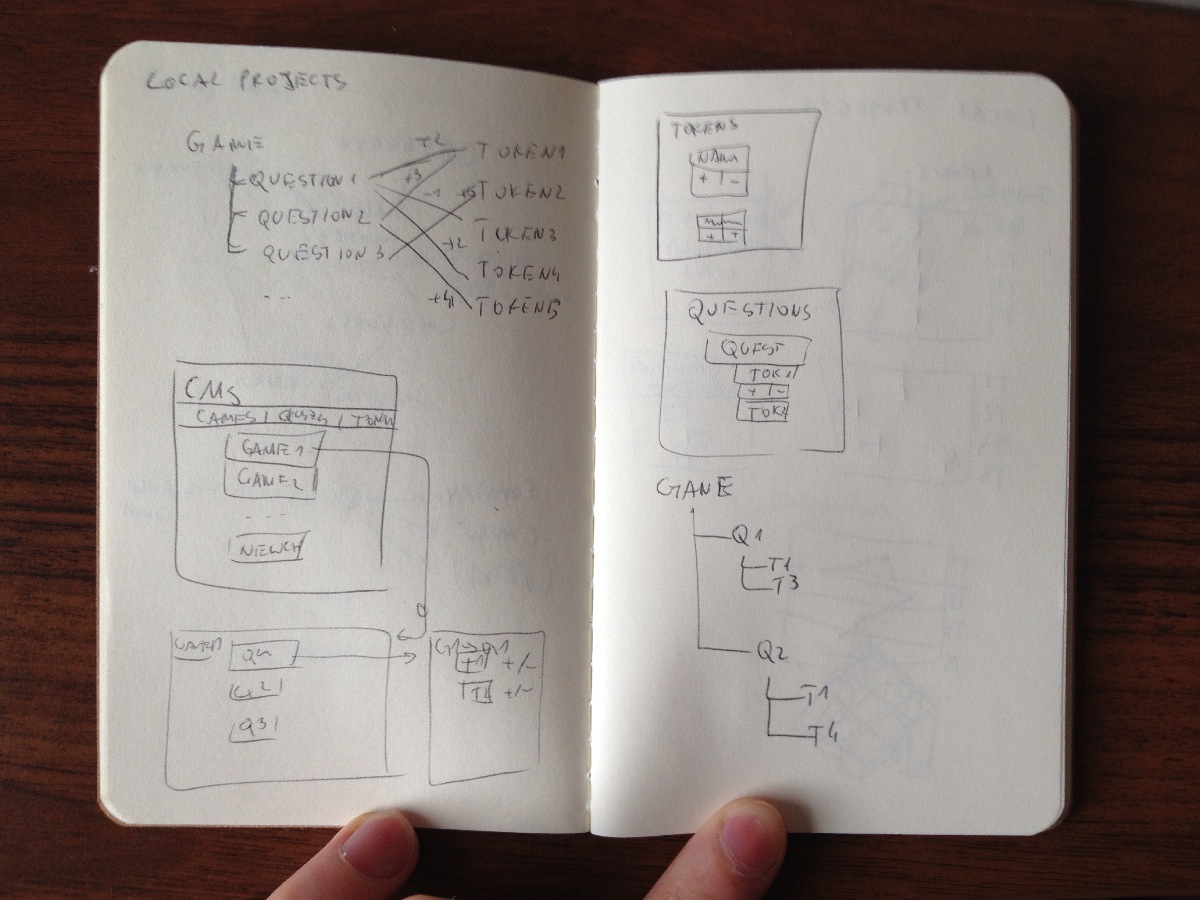 LOCAL PROJECTS
GAME
QUESTION 1
QUESTION 2
QUESTION 3
...
+2
+3
-1
+5
+2
+4
TOKEN1
TOKEN2
TOKEN3
TOKEN4
TOKEN5
CMS
GAMES /
GAME 1
GAME 2
...
GAME1
Q2
Q3
T1 +/-
T2 +/-
TOKENS
NAM
+ | -
+ +
QUESTIONS
QUEST
TOK1
+ | -
TOK4
GAME
Q1
T1
T3
Q2
T1
T4